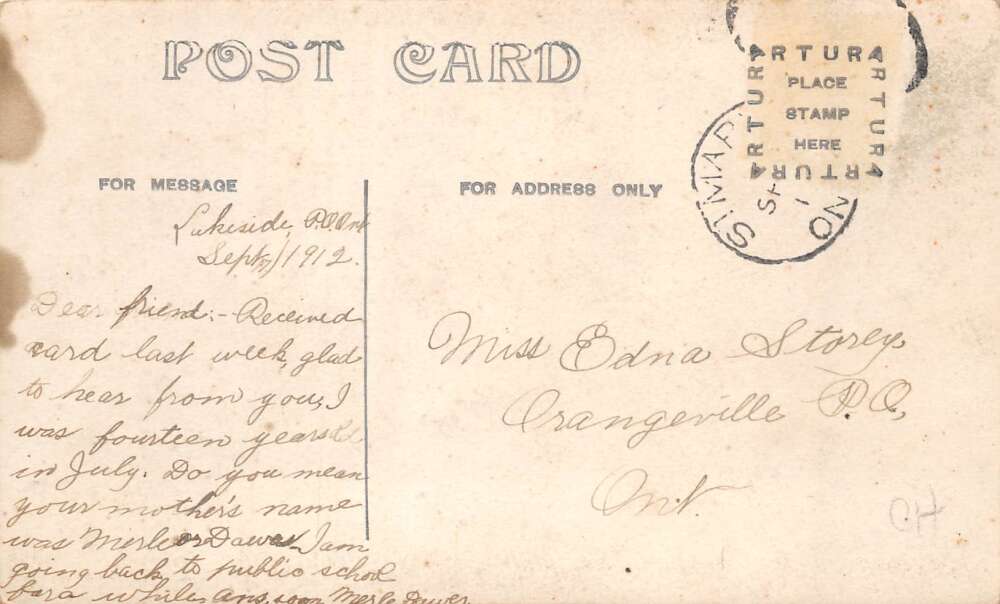 POST CARD
ARTURA
ARTURA
ARTURA
ARTURA
PLACE
STAMP
HERE
ST MAR
SP
1
ON
FOR MESSAGE
FOR ADDRESS ONLY
Lakeside, P.O. Ont
Sept, 1912.
Dear friend:- Received
card last week, glad
to hear from you, I
was fourteen years
in July. Do you mean
your mother's name
was Merle or Dawer I am
going back to public school
for a while, Ans. soon Merle Dawer
Miss Edna Storey,
Orangeville P.O,
Ont.
CH